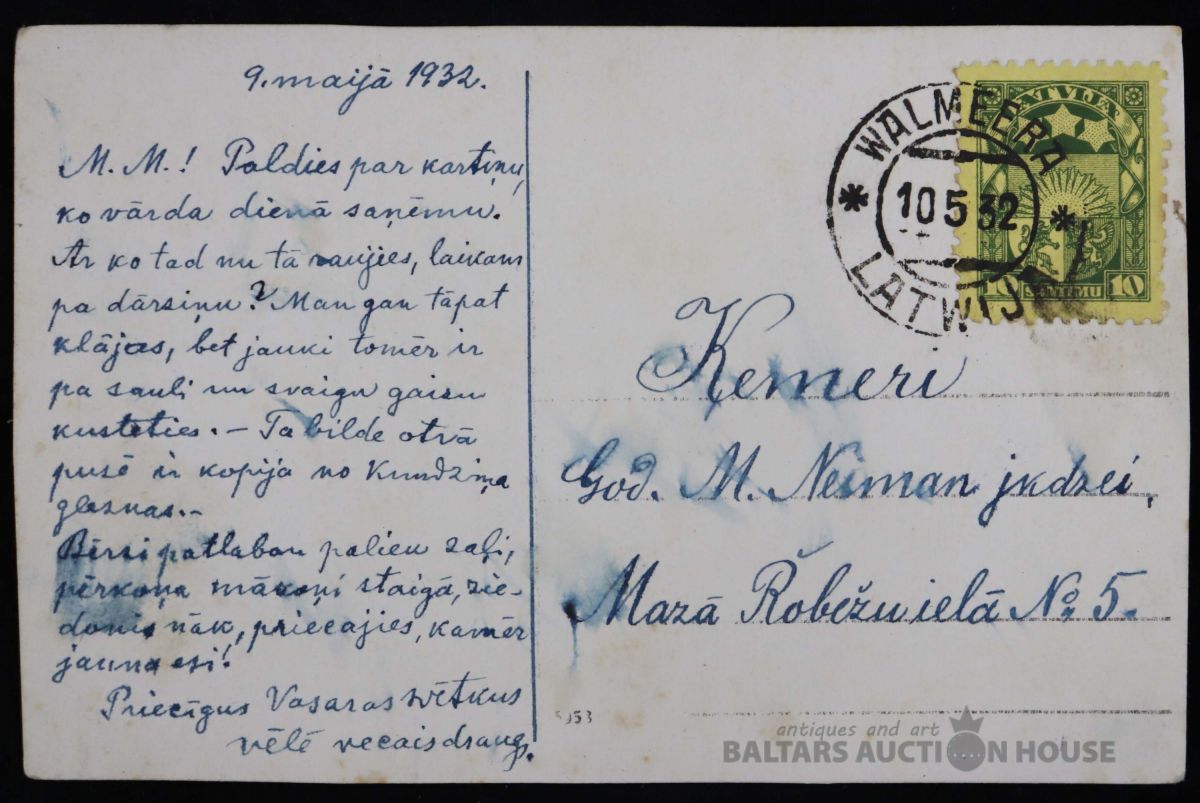 9. maijā 1932.
M. M.! Paldies par kartiņu,
ko vārda dienā saņēmu.
Ar ko tad nu tā raujies, laikam
pa dārsiņu? Man gan tāpat
klājas, bet jauki tomēr ir
pa sauli un svaigu gaisu
kusteties. — Ta bilde otrā
pusē ir kopija no Kundziņa
gleznas. —
Bērsi patlaban paliek saļi,
pērkoņa mākoņi staigā, zie-
donis nāk, priecajies, kamēr
jauna esi!
Priecīgus Vasaras svētkus
vēlē vecais draugs.
WALMEERA
10 5 32
LATWIJA
LATVIJA
10 SANTIMU 10
Ķemeri
God. M. Neiman jkdzei,
Mazā Robežu ielā № 5.
antiques and art
BALTARS AUCTION HOUSE